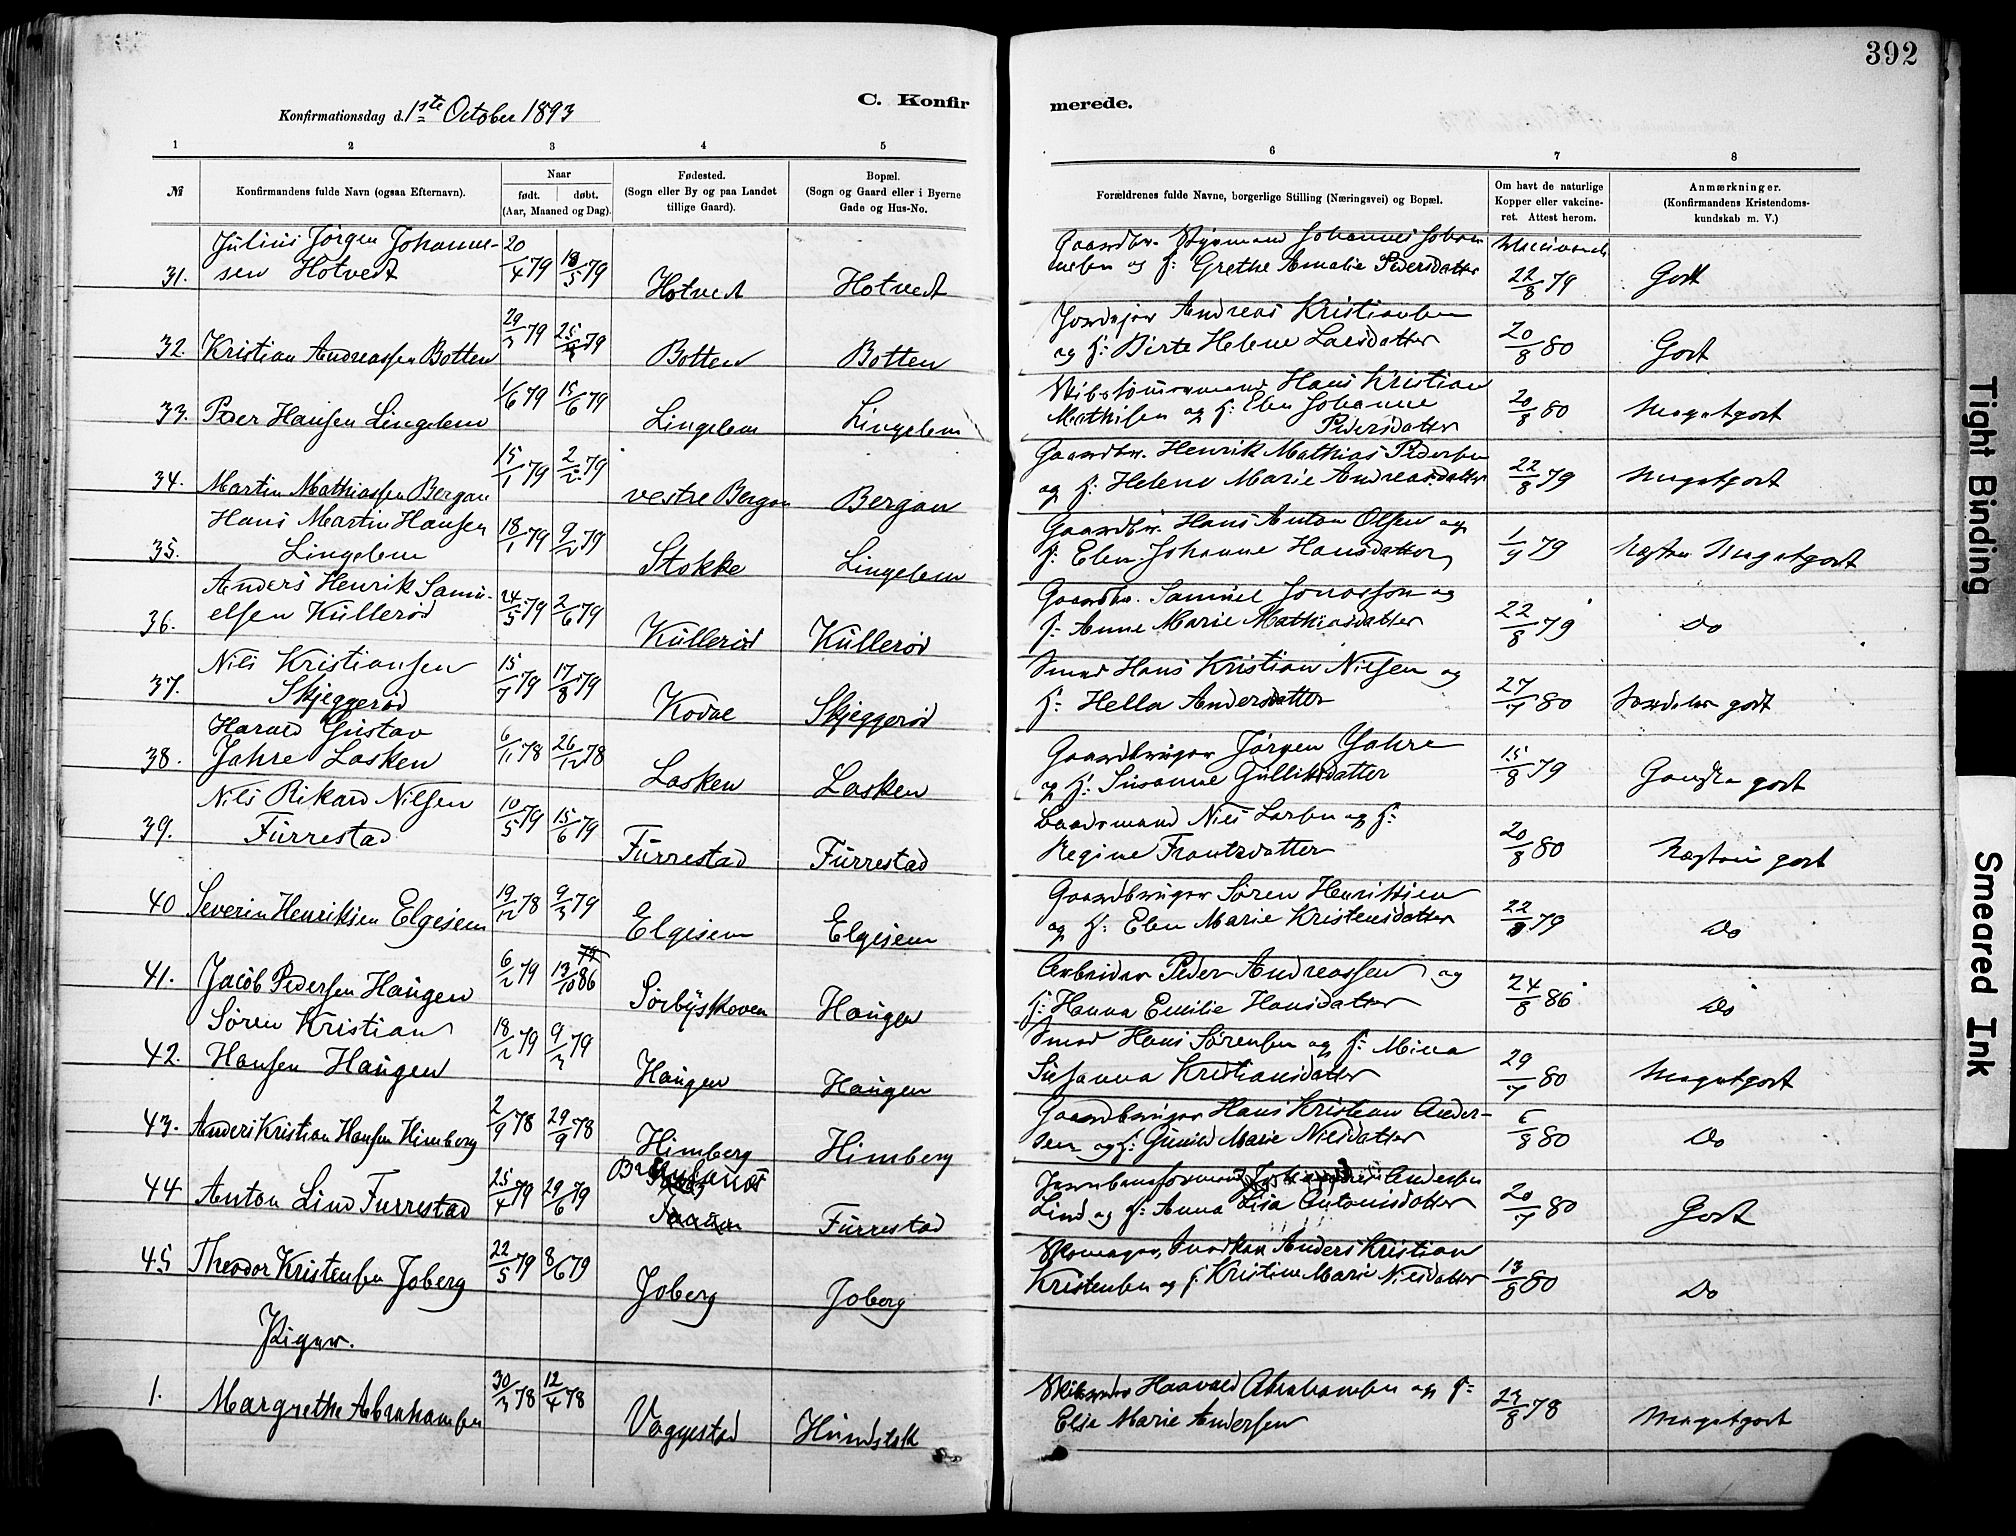 392
C. Konfir merede.
Konfirmationsdag d. 1ste October 1893
1 2 3 4 5 6 7 8
№
Konfirmandens fulde Navn (ogsaa Efternavn).
Naar
født. døbt.
(Aar, Maaned og Dag).
Fødested.
(Sogn eller By og paa Landet
tillige Gaard).
Bopæl.
(Sogn og Gaard eller i Byerne
Gade og Hus-No.
Forældrenes fulde Navne, borgerlige Stilling (Næringsvei) og Bopæl.
Om havt de naturlige
Kopper eller vakcine-
ret. Attest herom.
Anmærkninger.
(Konfirmandens Kristendoms-
kundskab m. V.)
Julius Jørgen Johanne- 20/4 79 18/5 79 Gaardbr. Styrmand Johannes Johan
31. sen Hotvedt Hotvedt Hotvedt nesen og h: Grethe Amalie Pedersdatter 22/8 79 Godt
29/3 79 Jordejer Andreas Kristiansen
32. Kristian Andreassen Botten Botten Botten og h: Birte Helene Larsdatter 20/8 80 Godt
1/6 79 15/6 79 Hans Kristian
33. Peder Hansen Lingelem Lingelem Lingelem Mathisen og h: Elen Johanne 20/8 80 Megetgodt
Pedersdatter
15/1 79 2/2 79 Gaardbr. Henrik Mathias Pedersen
34. Martin Mathiassen Bergan vestre Bergan Bergan og h: Helene Marie Andreasdatter 22/8 79 Megetgodt
Hans Martin Hansen 18/1 79 9/2 79 Gaardbr. Hans Anton Olsen og
35. Lingelem Stokke Lingelem h: Elen Johanne Hansdatter 1/9 79 Næsten Megetgodt
Anders Henrik Samu- 24/5 79 2/6 79 Gaardbr. Samuel Jonassen og
36. elsen Kullerød Kullerød Kullerød h: Anne Marie Mathiasdatter 22/8 79 Do
Nils Kristiansen 15/7 79 17/8 79 Smed Hans Kristian Nilsen og
37. Skjeggerød Kodal Skjeggerød h: Hella Andersdatter 27/7 80 godt
Harald Gustav 6/11 78 26/12 78 Gaardbruger Jørgen Jahre
38. Jahre Lasken Lasken Lasken og h: Susanne Gulliksdatter 15/8 79 Ganske godt
Nils Rikard Nilsen 10/5 79 15/6 79 Baadsmand Nils Larsen og h:
39. Furrestad Furrestad Furrestad Regine Frantzdatter 20/8 80 Næsten godt
19/12 78 9/3 79 Gaardbruger Søren Henriksen
40 Severin Henriksen Elgesem Elgesem Elgesem og h: Elen Marie Kristensdatter 22/8 79 Do
6/2 79 13/10 86 79 Arbeider Peder Andreassen og
41. Jacob Pedersen Haugen Sørbyskoven Haugen h: Hanna Emilie Hansdatter 24/8 86 Do
Søren Kristian 18/2 79 9/3 79 Smed Hans Sørensen og h: Mina
42. Hansen Haugen Haugen Haugen Susanna Kristiansdatter 29/7 80 Megetgodt
2/9 78 29/9 78 Gaardbruger Hans Kristian Ander-
43. Anders Kristian Hansen Himberg Himberg Himberg sen og h: Gunild Marie Nilsdatter 6/8 80 Do
25/4 79 29/6 79 Andersen
44 Anton Lind Furrestad Furrestad Lind og h: Anna Lisa Antonisdatter 20/7 80 Godt
22/5 79 8/6 79 Skomager, Anders Kristian
45 Theodor Kristensen Joberg Joberg Joberg Kristensen og h: Kristine Marie Nilsdatter 13/8 80 Do
Piger.
30/3 78 12/4 78 Haavald Abrahamsen og h:
1. Margrethe Abrahamsen Vaggestad Hundstok Elise Marie Andersen 23/8 78 Megetgodt
Tight Binding
Smeared Ink